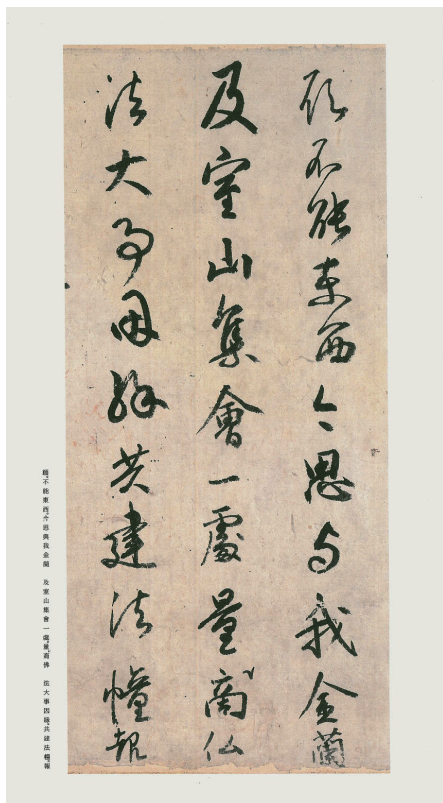 願不能東西今思与我金蘭
及室山集會一處量商仏
法大事因緣共建法幢報
願不能東西今思與我金蘭 及室山集會一處量商佛 法大事因緣共建法幢報